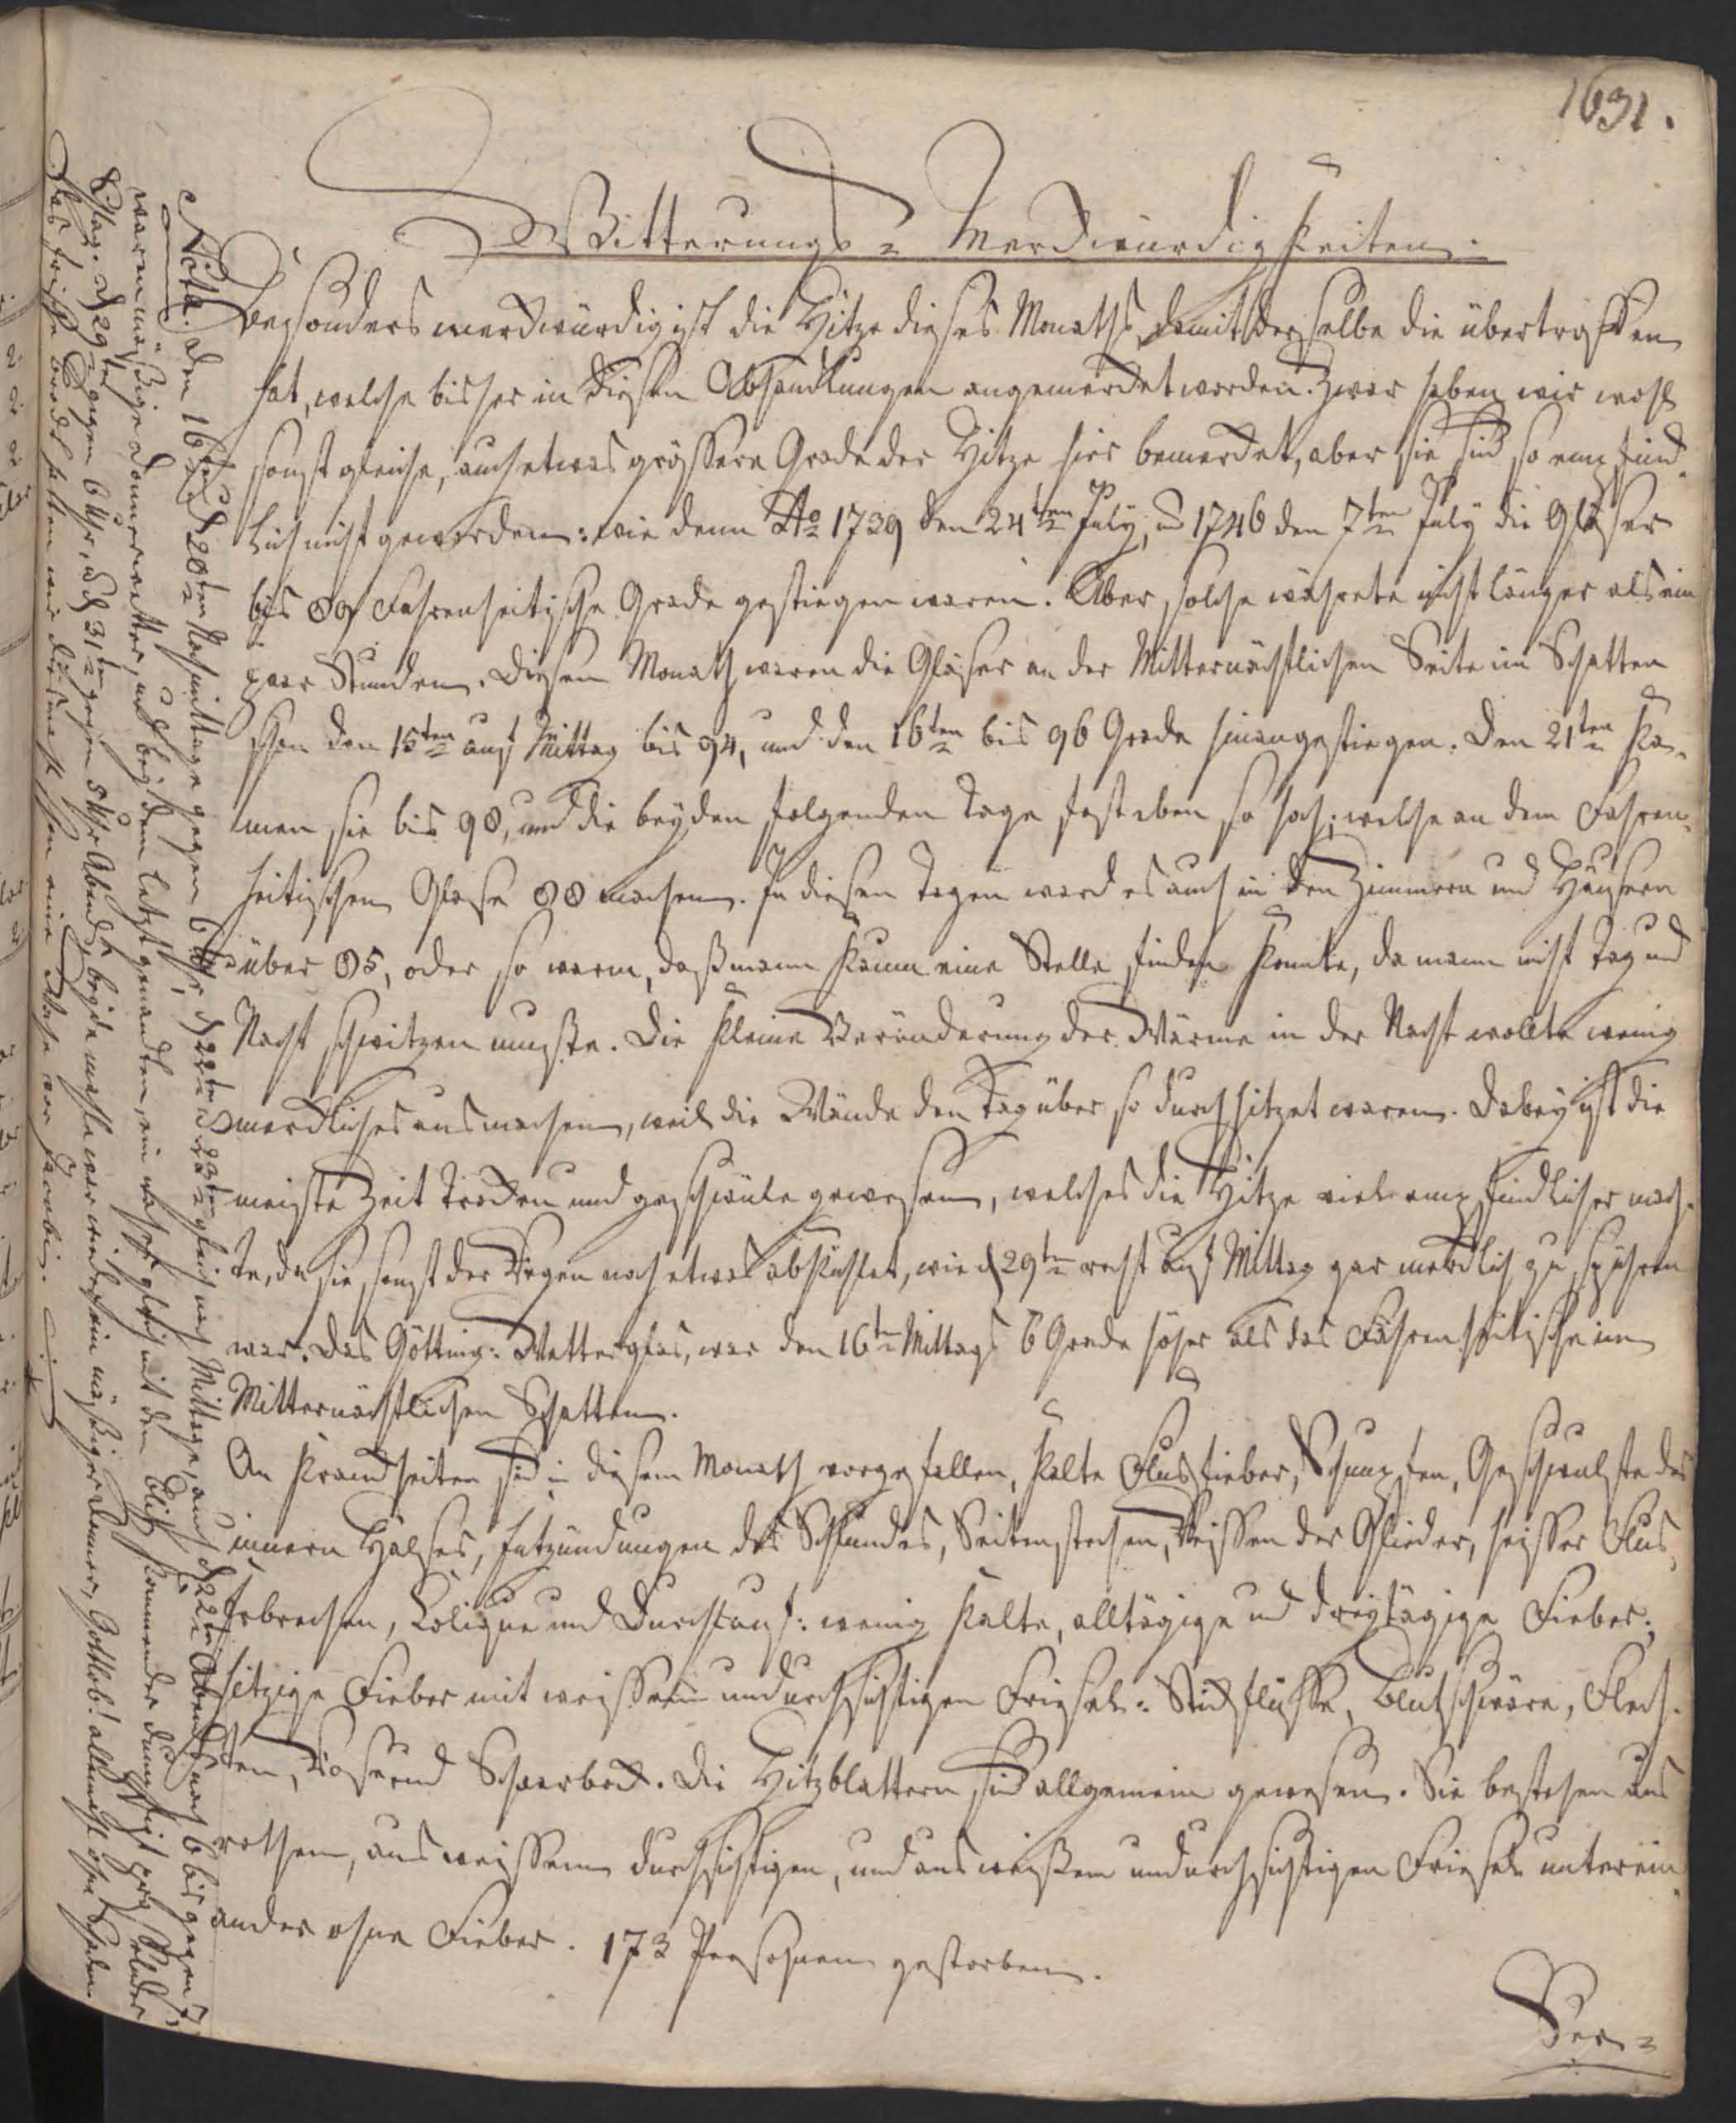 1631.
Witterungs- Merckwürdigkeiten.
Besonders merckwürdig ist die Hitze dieses Monaths, damit derselbe die übertroffen
hat, welche bisher in diesen Abhandlungen angemercket worden. Zwar haben wir wohl
sonst gleiche, auch etwas grössere Grade der Hitze hier bemercket, aber sie sind so empfind-
lich nicht geworden: wie denn Ao 1739 den 24ten July, und 1746 den 7ten July die Gläser
bis 89 Fahrenheitische Grade gestiegen waren. Aber, solche währete nicht länger als ein
paar Stunden. Diesen Monath waren die Gläser an der Mitternächtlichen Seite im Schatten
schon den 15ten auf Mittag bis 94, und den 16ten bis 96 Grade hinangestiegen. Den 21ten ka-
men sie bis 98, und die beyden folgenden Tage fast eben so hoch; welche an dem Fahren-
heitischen Glase 88 machen. In diesen Tagen ward es auch in den Zimmern und Häusern
über 85, oder so warm, daß mann kaum eine Stelle finden konnte, da mann nicht Tag und
Nacht schwitzen mußte. Die kleine Veränderung der Wärme in der Nacht wollte wenig
merckliches ausmachen, weil die Wände den Tag über so durchhitzet waren. Dabey ist die
meiste Zeit trocken und geschwüle gewesen, welches die Hitze viel empfindlicher mach-
te, da sie sonst der Regen noch etwas abkühlet, wie d 29te recht auf Mittag gar mercklich zu spühren
war. Das Götting: Wetterglas, war den 16te Mittags 6 Grade höher als das Fahrenheitische im
Mitternächtlichen Schatten.
An Kranckheiten sind in diesem Monath vorgefallen, kalte Flusfieber, Schnupfen, Geschwulste des
innern Halses, Entzündungen des Schlundes, Seitenstechen, Reissen der Glieder, heisser Flus,
Erbrechen, Colique und Durchlauf: wenig kalte, alltägige und dreytägige Fieber;
hitzige Fieber mit weissem undurchsichtigen Friesel: Stickflüsse, Blutschwäre, Flech-
ten, Rose und Scharbock. Die Hitzblattern sind allgemein gewesen. Sie bestehen aus
rothem, aus weissem durchsichtigen, und aus weißem undurchsichtigen Friesel unterein-
ander ohne Fieber. 173 Persohnen gestorben.
Ver-
Nota. Den 16ten u d 20ten Nachmittage gegen 6 Uhr, d 22ten u 23ten gleich nach Mittage, auch d 22ten Abends nach 6 bis gegen 7,
waren mäßige Donnerwetter, und bey dem letzt genandten, ein gleich mit dem Blitz kommender
Schlag. d 29ten Morgen 6 Uhr, und d 31ten gegen 5 Uhr Abends, beyde mahle war wieder ein mäßiger Donner, Gottlob! allemahl ohne Schaden.